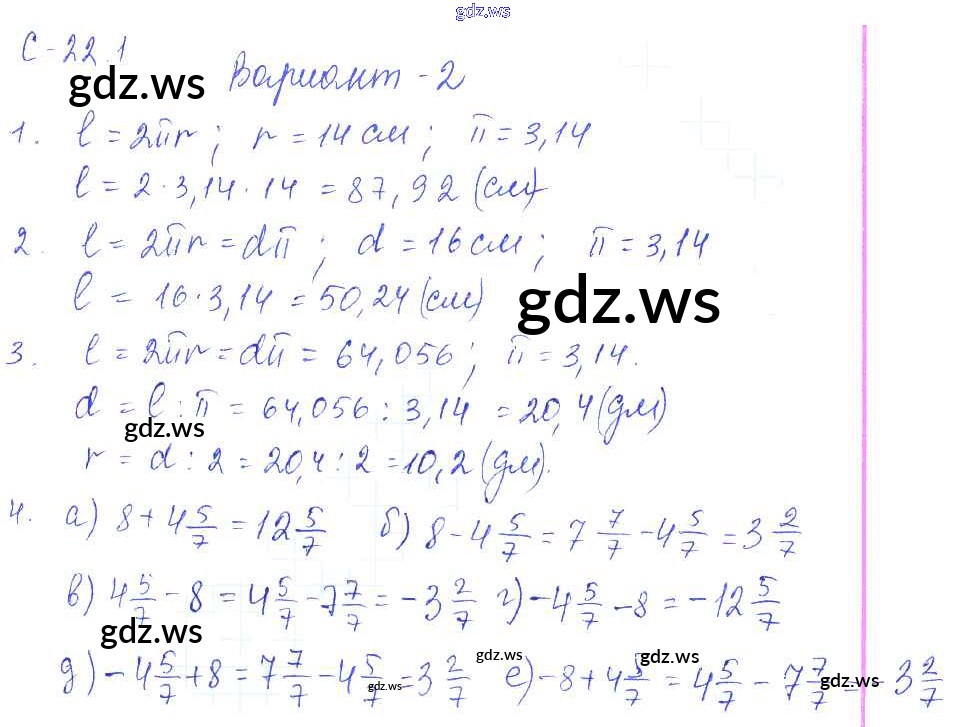 gdz.ws
С-22.1
gdz.ws Вариант-2
1. l = 2πr ; r = 14 см ; π = 3,14
l = 2·3,14·14 = 87,92 (см)
2. l = 2πr = dπ ; d = 16 см ; π = 3,14
l = 16·3,14 = 50,24 (см) gdz.ws
3. l = 2πr = dπ = 64,056 ; π = 3,14.
d = l : π = 64,056 : 3,14 = 20,4 (дм)
gdz.ws
r = d : 2 = 20,4 : 2 = 10,2 (дм).
4. а) 8 + 4 5/7 = 12 5/7 б) 8 - 4 5/7 = 7 7/7 - 4 5/7 = 3 2/7
в) 4 5/7 - 8 = 4 5/7 - 7 7/7 = -3 2/7 г) -4 5/7 - 8 = -12 5/7
gdz.ws
д) -4 5/7 + 8 = 7 7/7 - 4 5/7 = 3 2/7 е) -8 + 4 5/7 = 4 5/7 - 7 7/7 = -3 2/7
gdz.ws gdz.ws gdz.ws gdz.ws